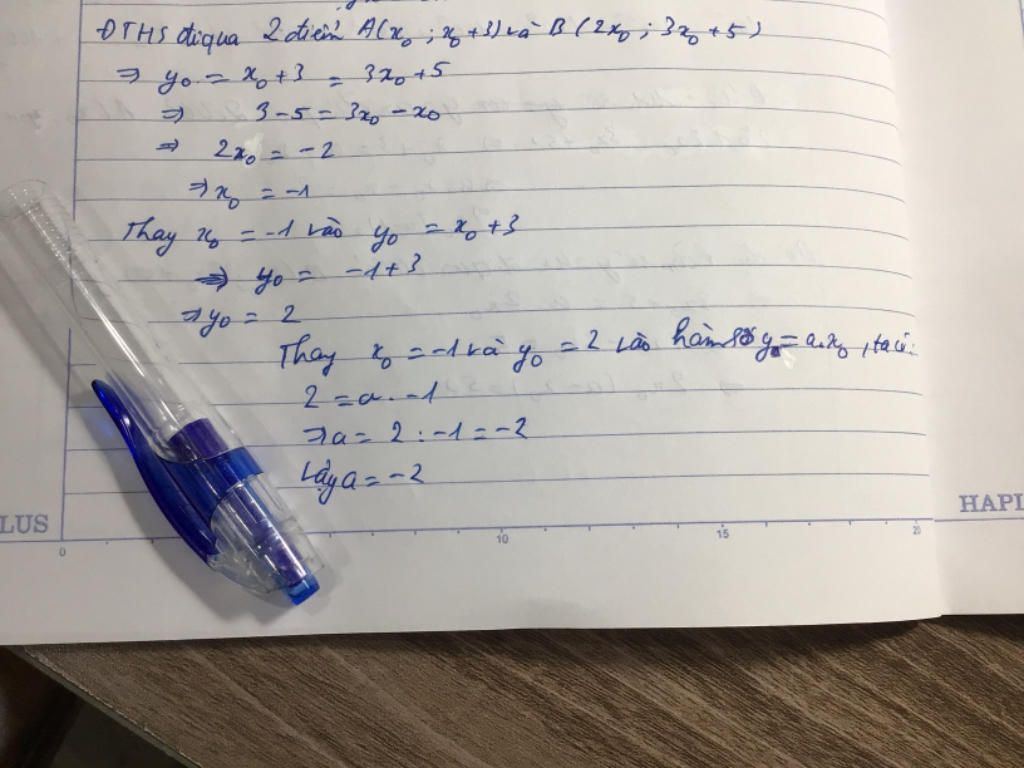 ĐTHS đi qua 2 điểm A(x₀ ; x₀+3) và B (2x₀ ; 3x₀+5)
⇒ y₀ = x₀+3 = 3x₀+5
⇒ 3-5 = 3x₀ - x₀
⇒ 2x₀ = -2
⇒ x₀ = -1
Thay x₀ = -1 vào y₀ = x₀+3
⇒ y₀ = -1+3
⇒ y₀ = 2
Thay x₀ = -1 và y₀ = 2 vào hàm số y = a.x₀, ta có:
2 = a . -1
⇒ a = 2 : -1 = -2
Vậy a = -2
LUS
0 10 15 20
HAPL